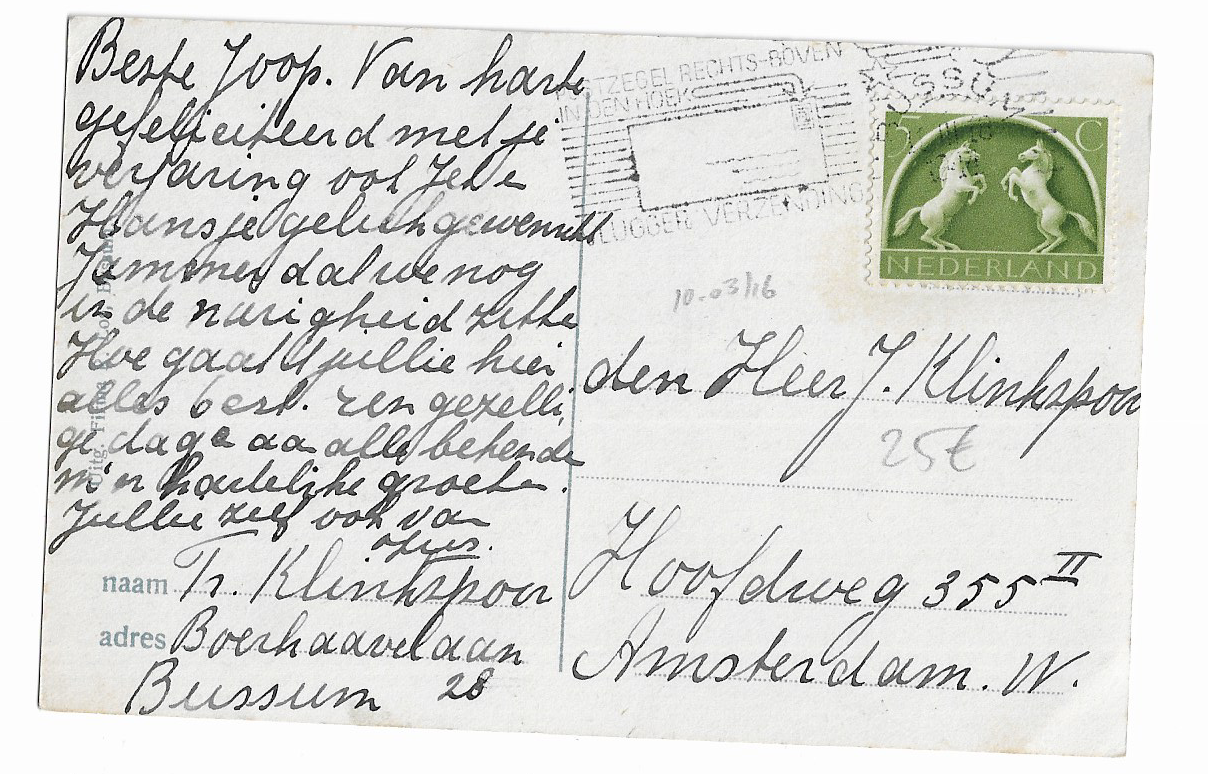 Beste Joop. Van harte
gefeliciteerd met je
verjaring ook Jette
Hansje geluk gewenscht
Jammer dat we nog
in de narigheid zitte
Hoe gaat 't jullie hier
alles best. Een gezelli
ge dage aa alle bekende
m'n hartelijke groete.
Jullie zelf ook van
Tr. Klinkspoor
naam
adres Boerhaavelaan
Bussum 28
Uitg. Firma
POSTZEGEL RECHTS-BOVEN
IN DEN HOEK
VLUGGER VERZENDING
BUSSUM
5 C
NEDERLAND
10-03/16
den Heer J. Klinkspoor
25€
Hoofdweg 355 II
Amsterdam. W.